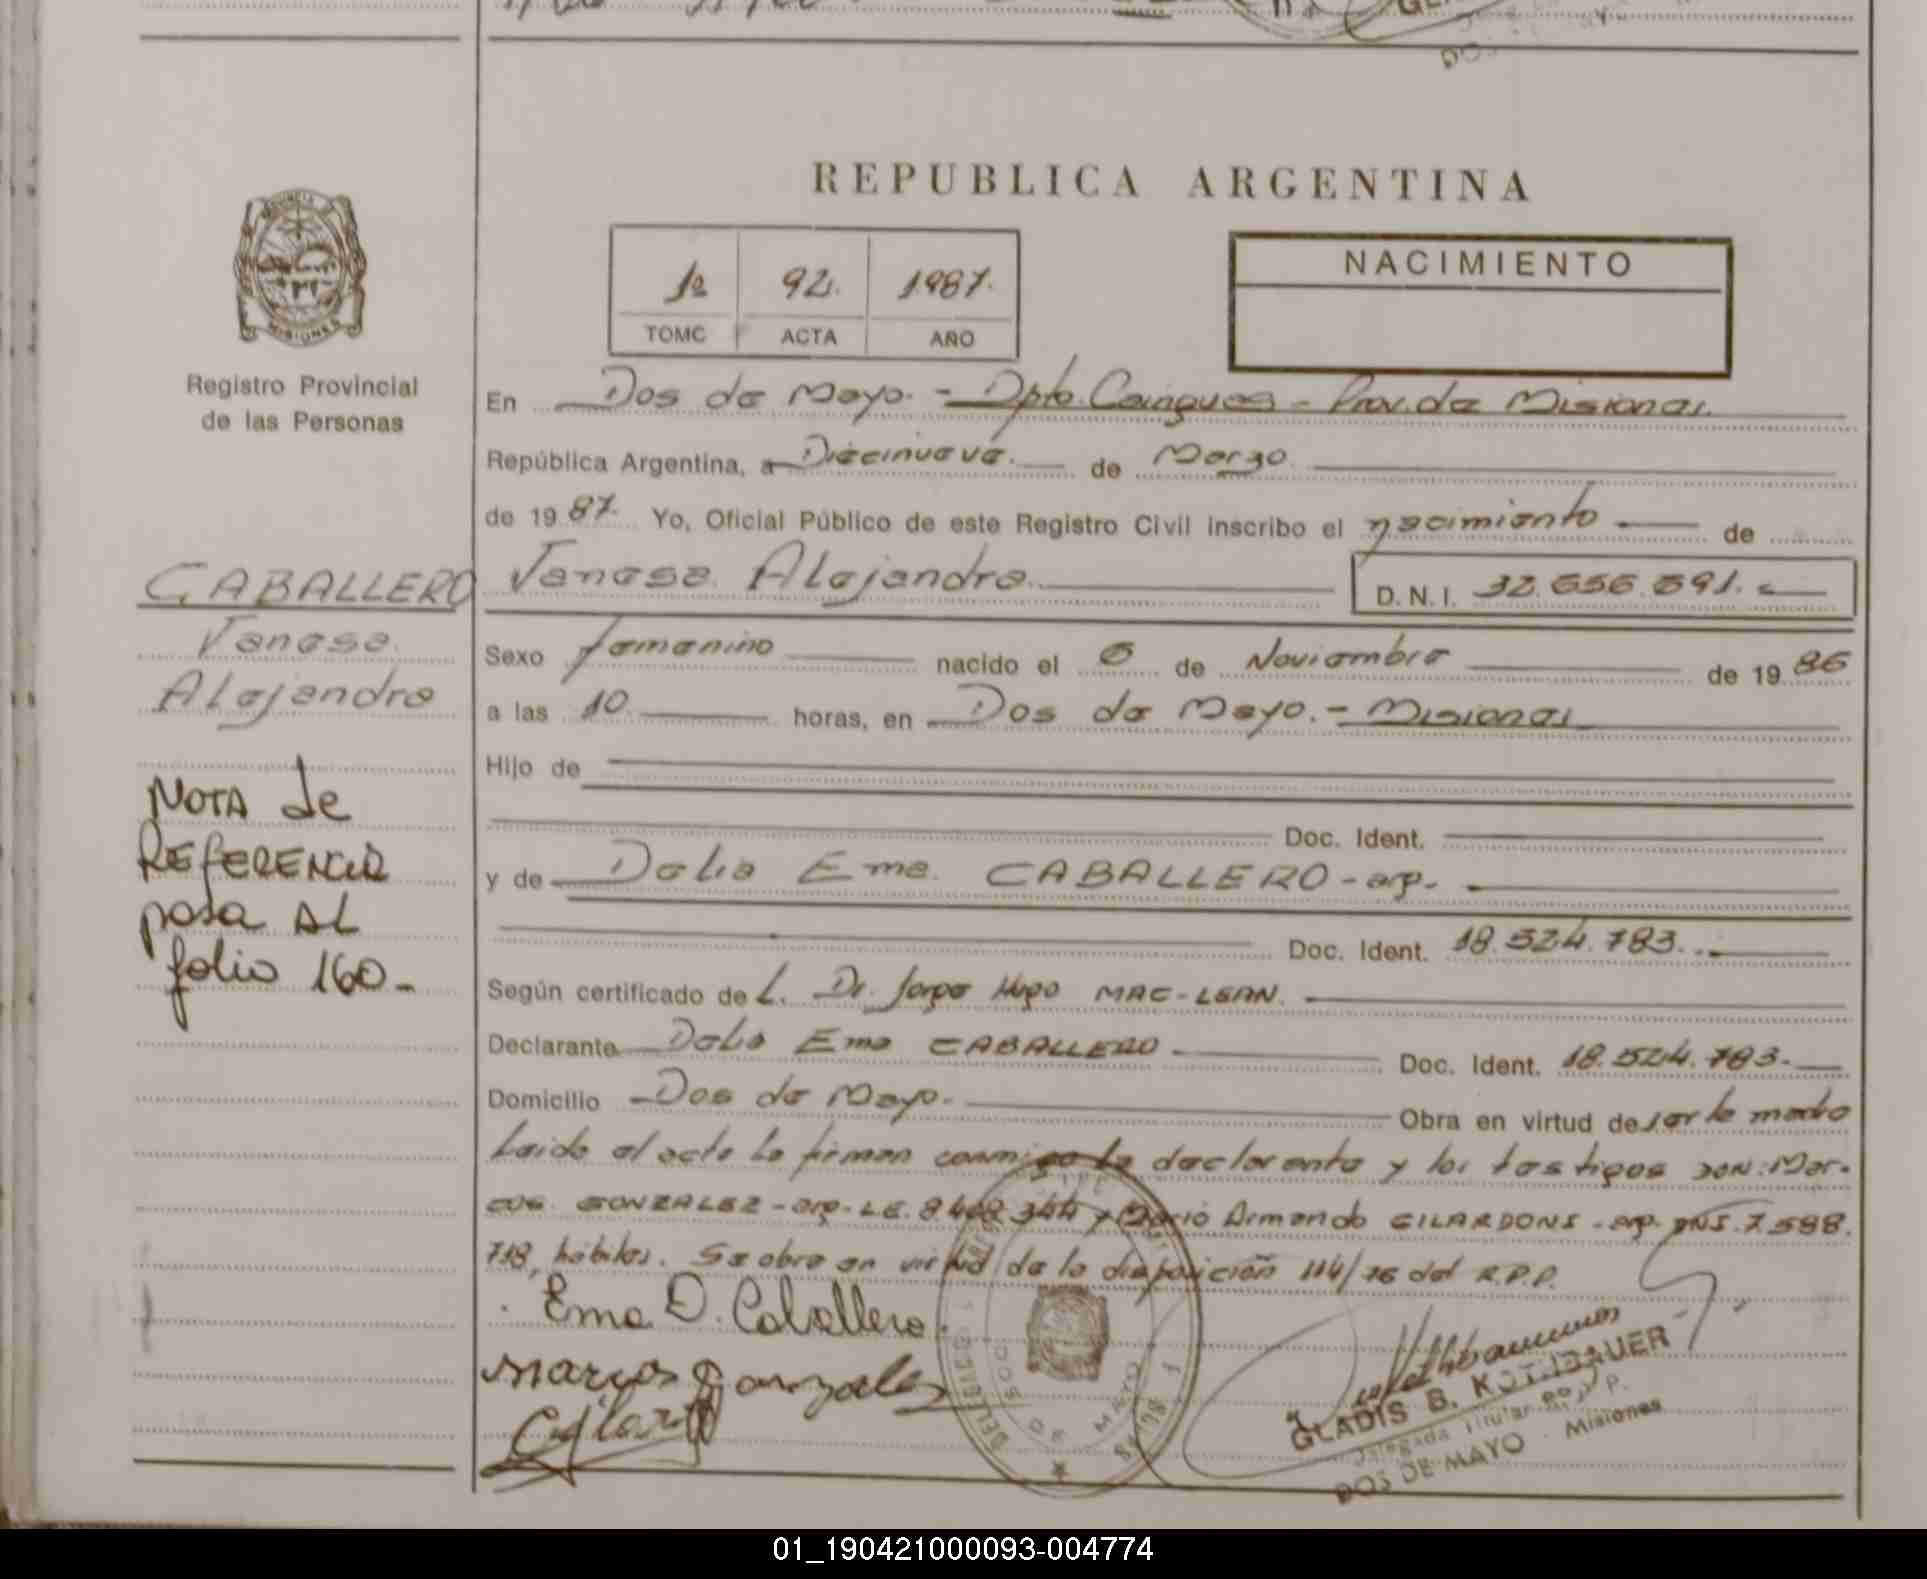 REPUBLICA ARGENTINA
MISIONES
Registro Provincial
de las Personas
1º 92. 1987.
TOMO ACTA AÑO
NACIMIENTO
En Dos de Mayo. - Dpto. Cainguas - Prov. de Misiones.
República Argentina, a Diecinueve. de Marzo
de 1987. Yo, Oficial Público de este Registro Civil inscribo el nacimiento de
CABALLERO
Vanesa
Alejandra
Vanesa Alejandra. D.N.I. 32.656.691.
Sexo femenino nacido el 6 de Noviembre de 1986
a las 10 horas, en Dos de Mayo. - Misiones
Hijo de
Doc. Ident.
y de Dalia Ema. CABALLERO - arg.
Doc. Ident. 18.524.783.
NOTA de
REFERENCIA
pasa AL
folio 160 -
Según certificado de L. Dr. Jorge Hugo MAC-LEAN.
Declarante Dalia Ema CABALLERO Doc. Ident. 18.524.783.
Domicilio Dos de Mayo. Obra en virtud de ser la madre
Leida el acta la firman conmigo la declarante y los testigos DON: Mar-
cos. GONZALEZ - arg. L.E. 8.408.344 y Dario Armando GILARDONI - arg. DNI. 7.588.
718, hábiles. Se obra en virtud de la disposición 114/76 del R.P.P.
Ema D. Caballero.
Marcos Gonzalez
DOS DE MAYO
GLADIS B. KOTHBAUER
Delegada Titular R.P.P.
DOS DE MAYO - Misiones
01_190421000093-004774